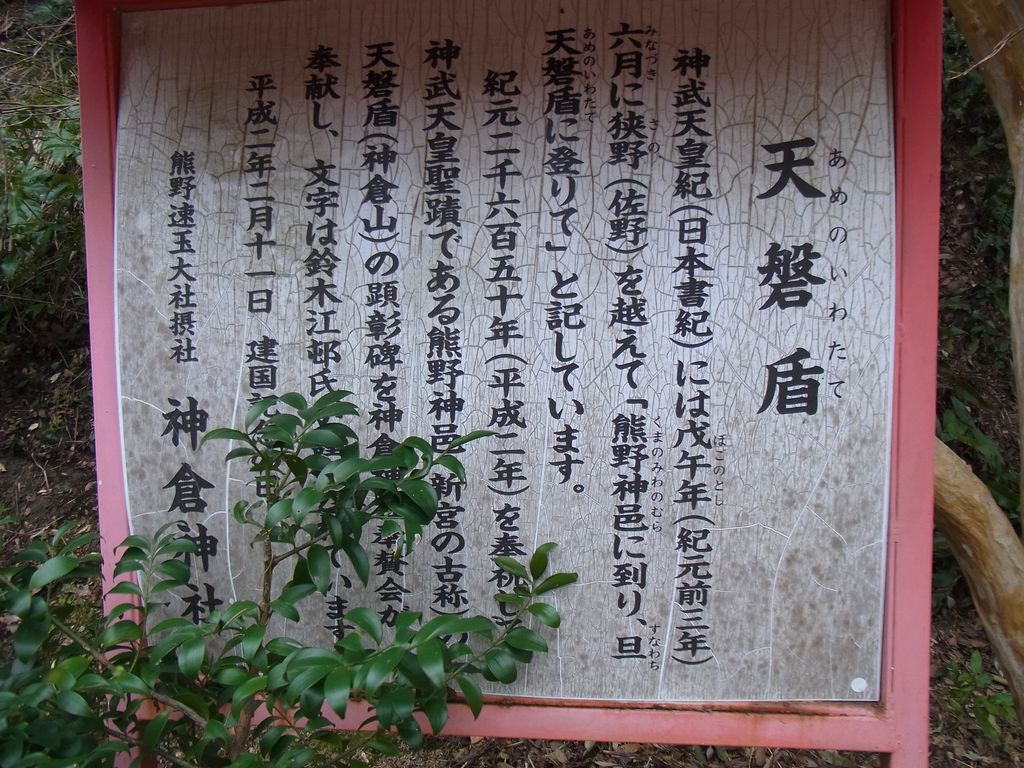 天磐盾
あめのいわたて
神武天皇紀(日本書紀)には戊午年(紀元前三年)
ほこのとし
六月に狭野(佐野)を越えて「熊野神邑に到り、旦
みなづき さの くまのみわのむら すなわち
天磐盾に登りて」と記しています。
あめのいわたて
紀元二千六百五十年(平成二年)を奉祝し
神武天皇聖蹟である熊野神邑 新宮の古称)
天磐盾(神倉山)の顕彰碑を神倉 奉賛会が
奉献し、文字は鈴木江邨氏 います
平成二年二月十一日 建国記念日
熊野速玉大社摂社 神倉神社